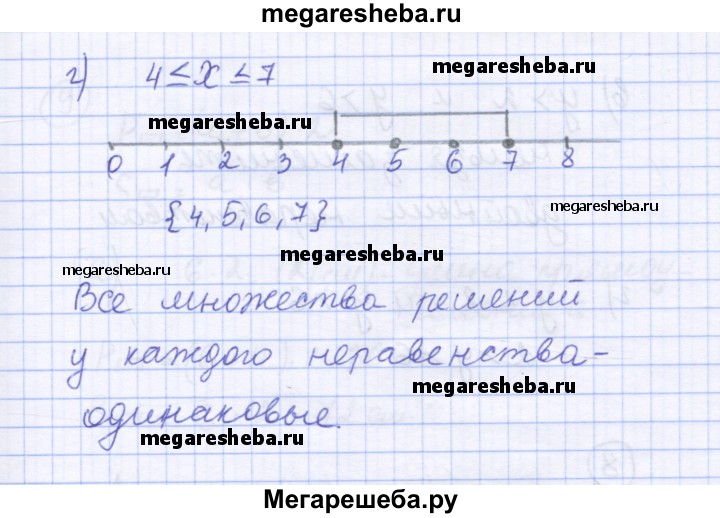 megaresheba.ru
г) 4 ≤ x ≤ 7
megaresheba.ru
megaresheba.ru
0 1 2 3 4 5 6 7 8
{4, 5, 6, 7}
megaresheba.ru
megaresheba.ru
megaresheba.ru
Все множества решений
у каждого неравенства-
megaresheba.ru
megaresheba.ru
одинаковые.
megaresheba.ru
Мегарешеба.ру